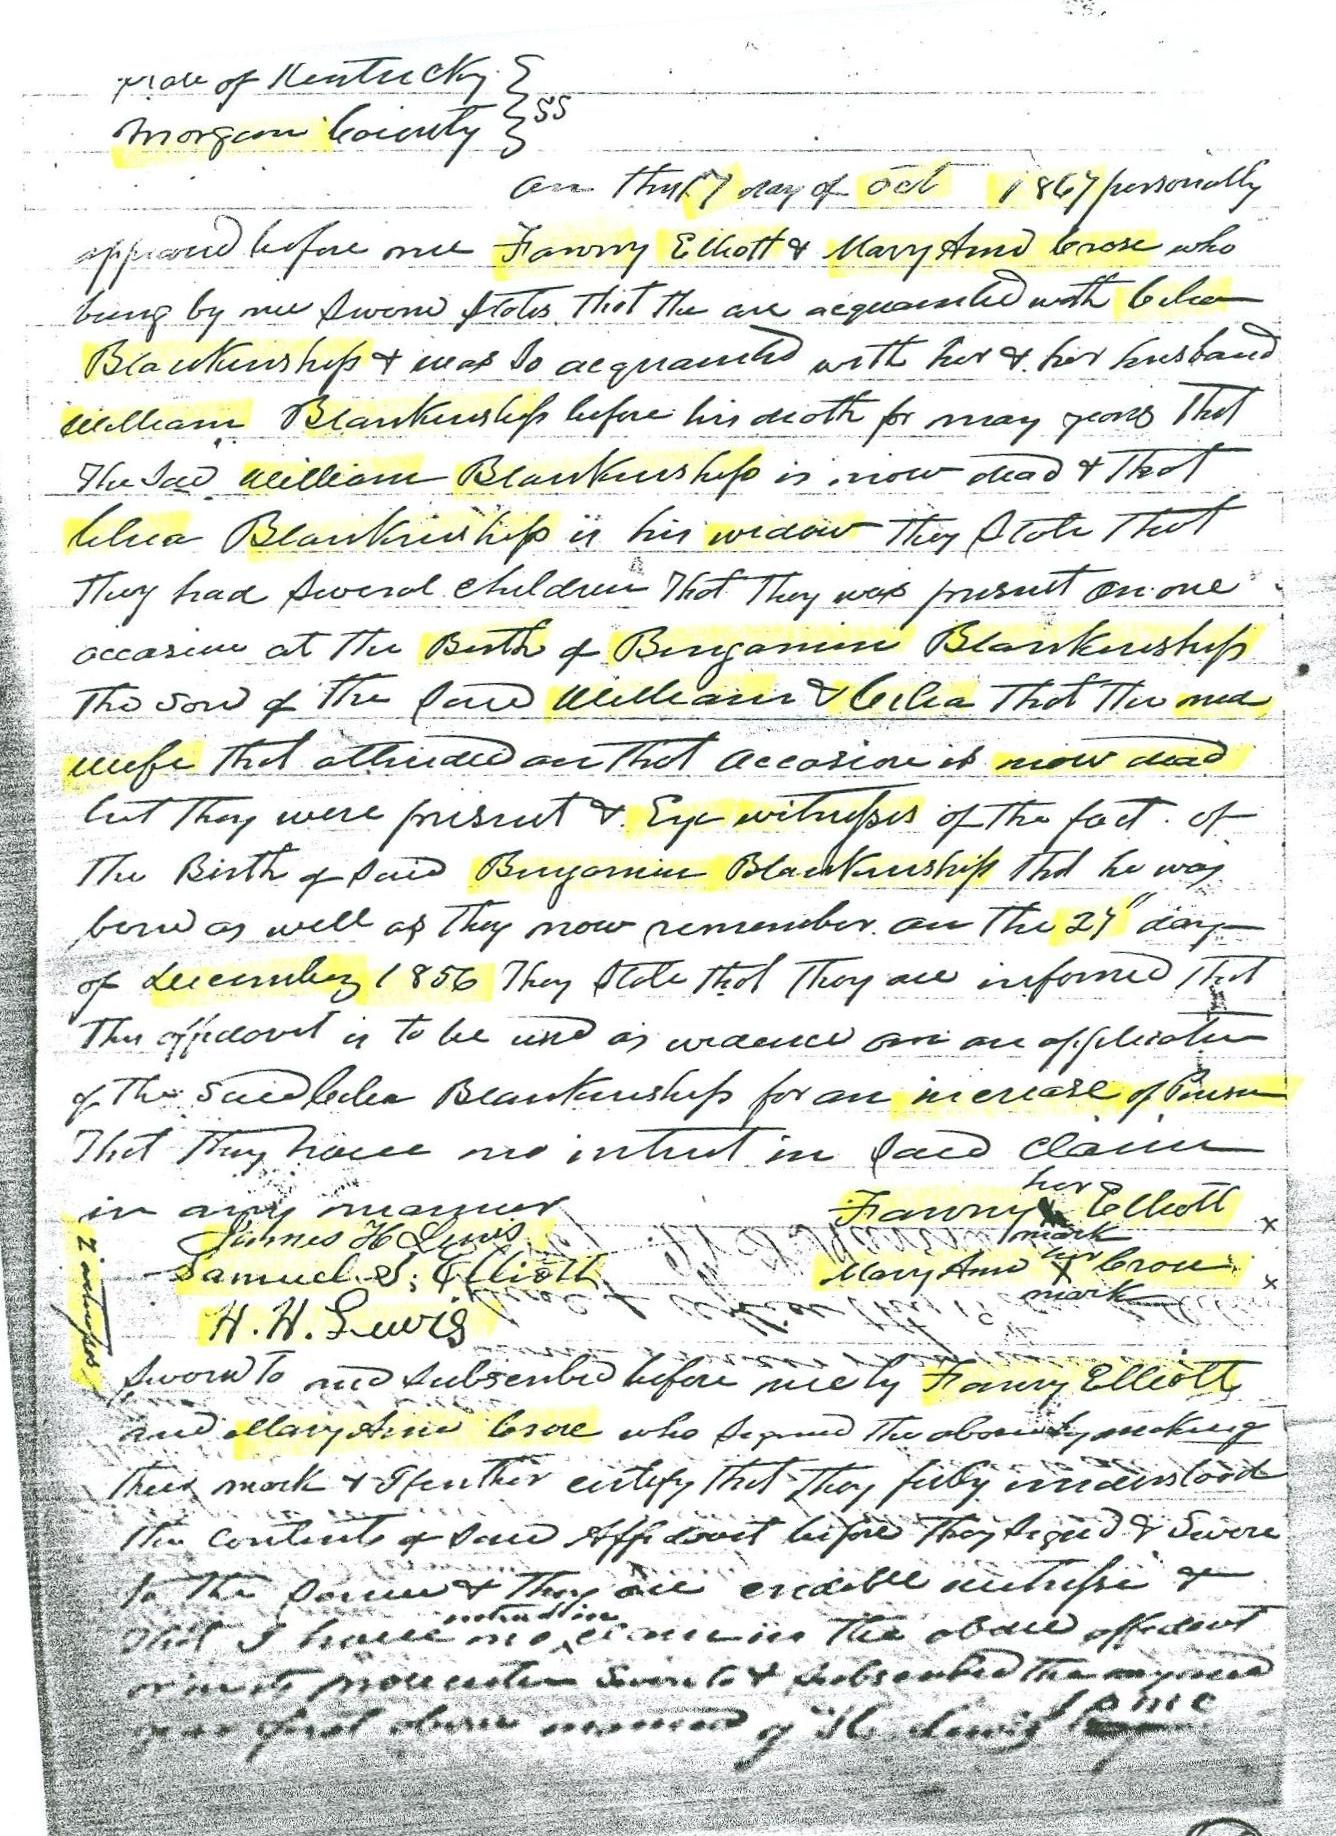 State of Kentucky }
Morgan County } SS
On this 17 day of Oct 1867 personally
appeared before me Fanny Elliott & Mary Ann Crose who
being by me Sworn States that the are acquainted with Celia
Blankinship & was So acquainted with her & her husband
William Blankenship before his death for may years that
The Sad William Blankenship is now dead & that
Celia Blankinship is his widow They State that
They had Several Children That They was present on one
occasion at the Birth of Bengamin Blankenship
The Son of the Said William & Celia that the mid
wife that attended on that occasion is now dead
but they were present & Eye witnesses of the fact of
the Birth of Said Bengamin Blankenship that he was
born as well as they now remember on the 27" day
of December 1856 They State that they are informed that
This affidavit is to be used as evidence on an application
of the Said Celia Blankenship for an increase of Pension
That they have no intrest in Said Claim
in any manner
her
Fanny X Elliott x
mark
James H Lewis
her
Samuel S. Elliott
Mary Ann X Crose x
mark
H. H. Lewis
2 witnesses
Sworn to and Subscribed before me by Fanny Elliott
and Mary Ann Crose who Signed the above by making
their mark & I further certify that they fully understood
the contents of Said Affidavit before they Signed & Swore
to the Same & they are credible witnesses &
that I have no interest in claim in the above affidavit
or in its prosecution Sworn to & Subscribed the day and
year first above Lewis